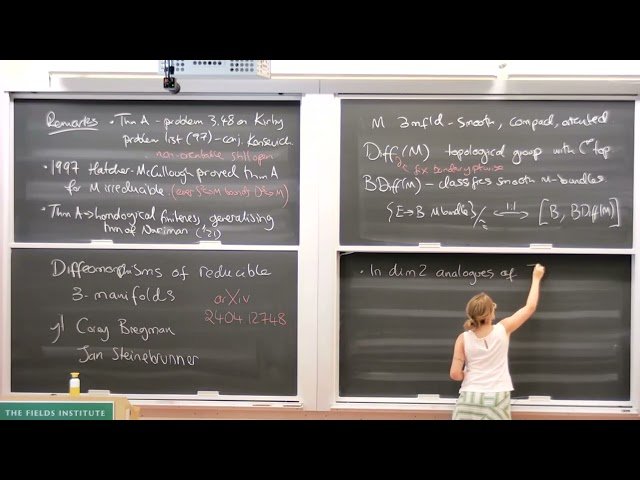 Remarks • Thm A - problem 3.48 on Kirby
problem list ('97) - conj. Konsevich.
non-orientable still open
• 1997 Hatcher-McCullough proved thm A
for M irreducible (every S²↪M bounds D³↪M)
• Thm A → homological finiteness, generalising
thm of Nariman ('21)
Diffeomorphisms of reducible
3-manifolds
arXiv
240412748
j/ Corey Bregman
Jan Steinebrunner
M 3mfld - smooth, compact, oriented
Diff(M) - topological group with C^∞ top
fix boundary ptwise
BDiff(M) - classifies smooth M-bundles
{E→B M bundles}/≅ ⟷ [B, BDiff(M)]
1:1
• In dim 2 analogues of
THE FIELDS INSTITUTE